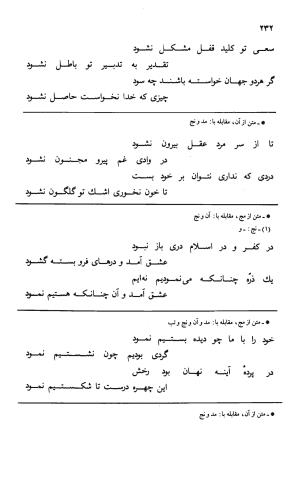 ۲۳۲
سعی تو کلید قفل مشکل نشود
تقدیر به تدبیر تو باطل نشود
گر هردو جهان خواسته باشند چه سود
چیزی که خدا نخواست حاصل نشود
* ـ متن از آن، مقابله با: مد و نج
تا از سر مرد عقل بیرون نشود
در وادی غم پیرو مجنون نشود
دردی که نداری نتوان بر خود بست
تا خون نخوری اشك تو گلگون نشود
* ـ متن از مج، مقابله با: آن و نج
(۱) ـ نج: ـ و
در کفر و در اسلام دری باز نبود
عشق آمد و درهای فرو بسته گشود
یك ذرّه چنانکه می‌نمودیم نه‌ایم
عشق آمد و آن چنانکه هستیم نمود
* ـ متن از مج، مقابله با: مد و آن و نج و لب
خود را با ما چو دیده بستیم نمود
گردی بودیم چون نشستیم نمود
در پردهٔ آینه نهان بود رخش
این چهره درست تا شکستیم نمود
* ـ متن از آن، مقابله با: مد و نج